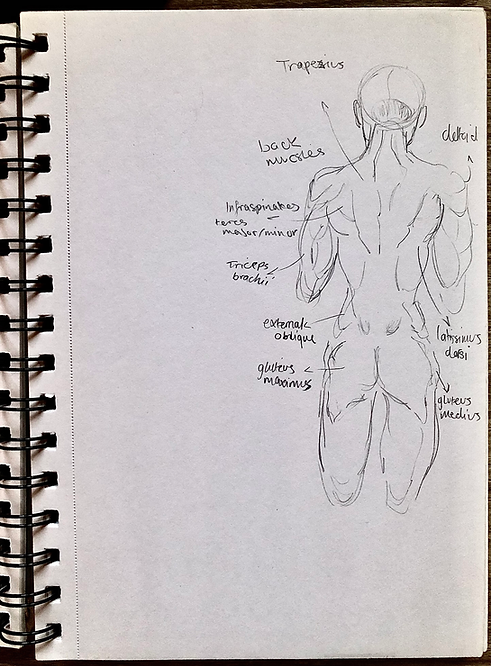 Trapezius
deltoid
back
muscles
Infraspinatus
teres
major/minor
Triceps
brachii
external
oblique
latissimus
dorsi
gluteus
maximus
gluteus
medius